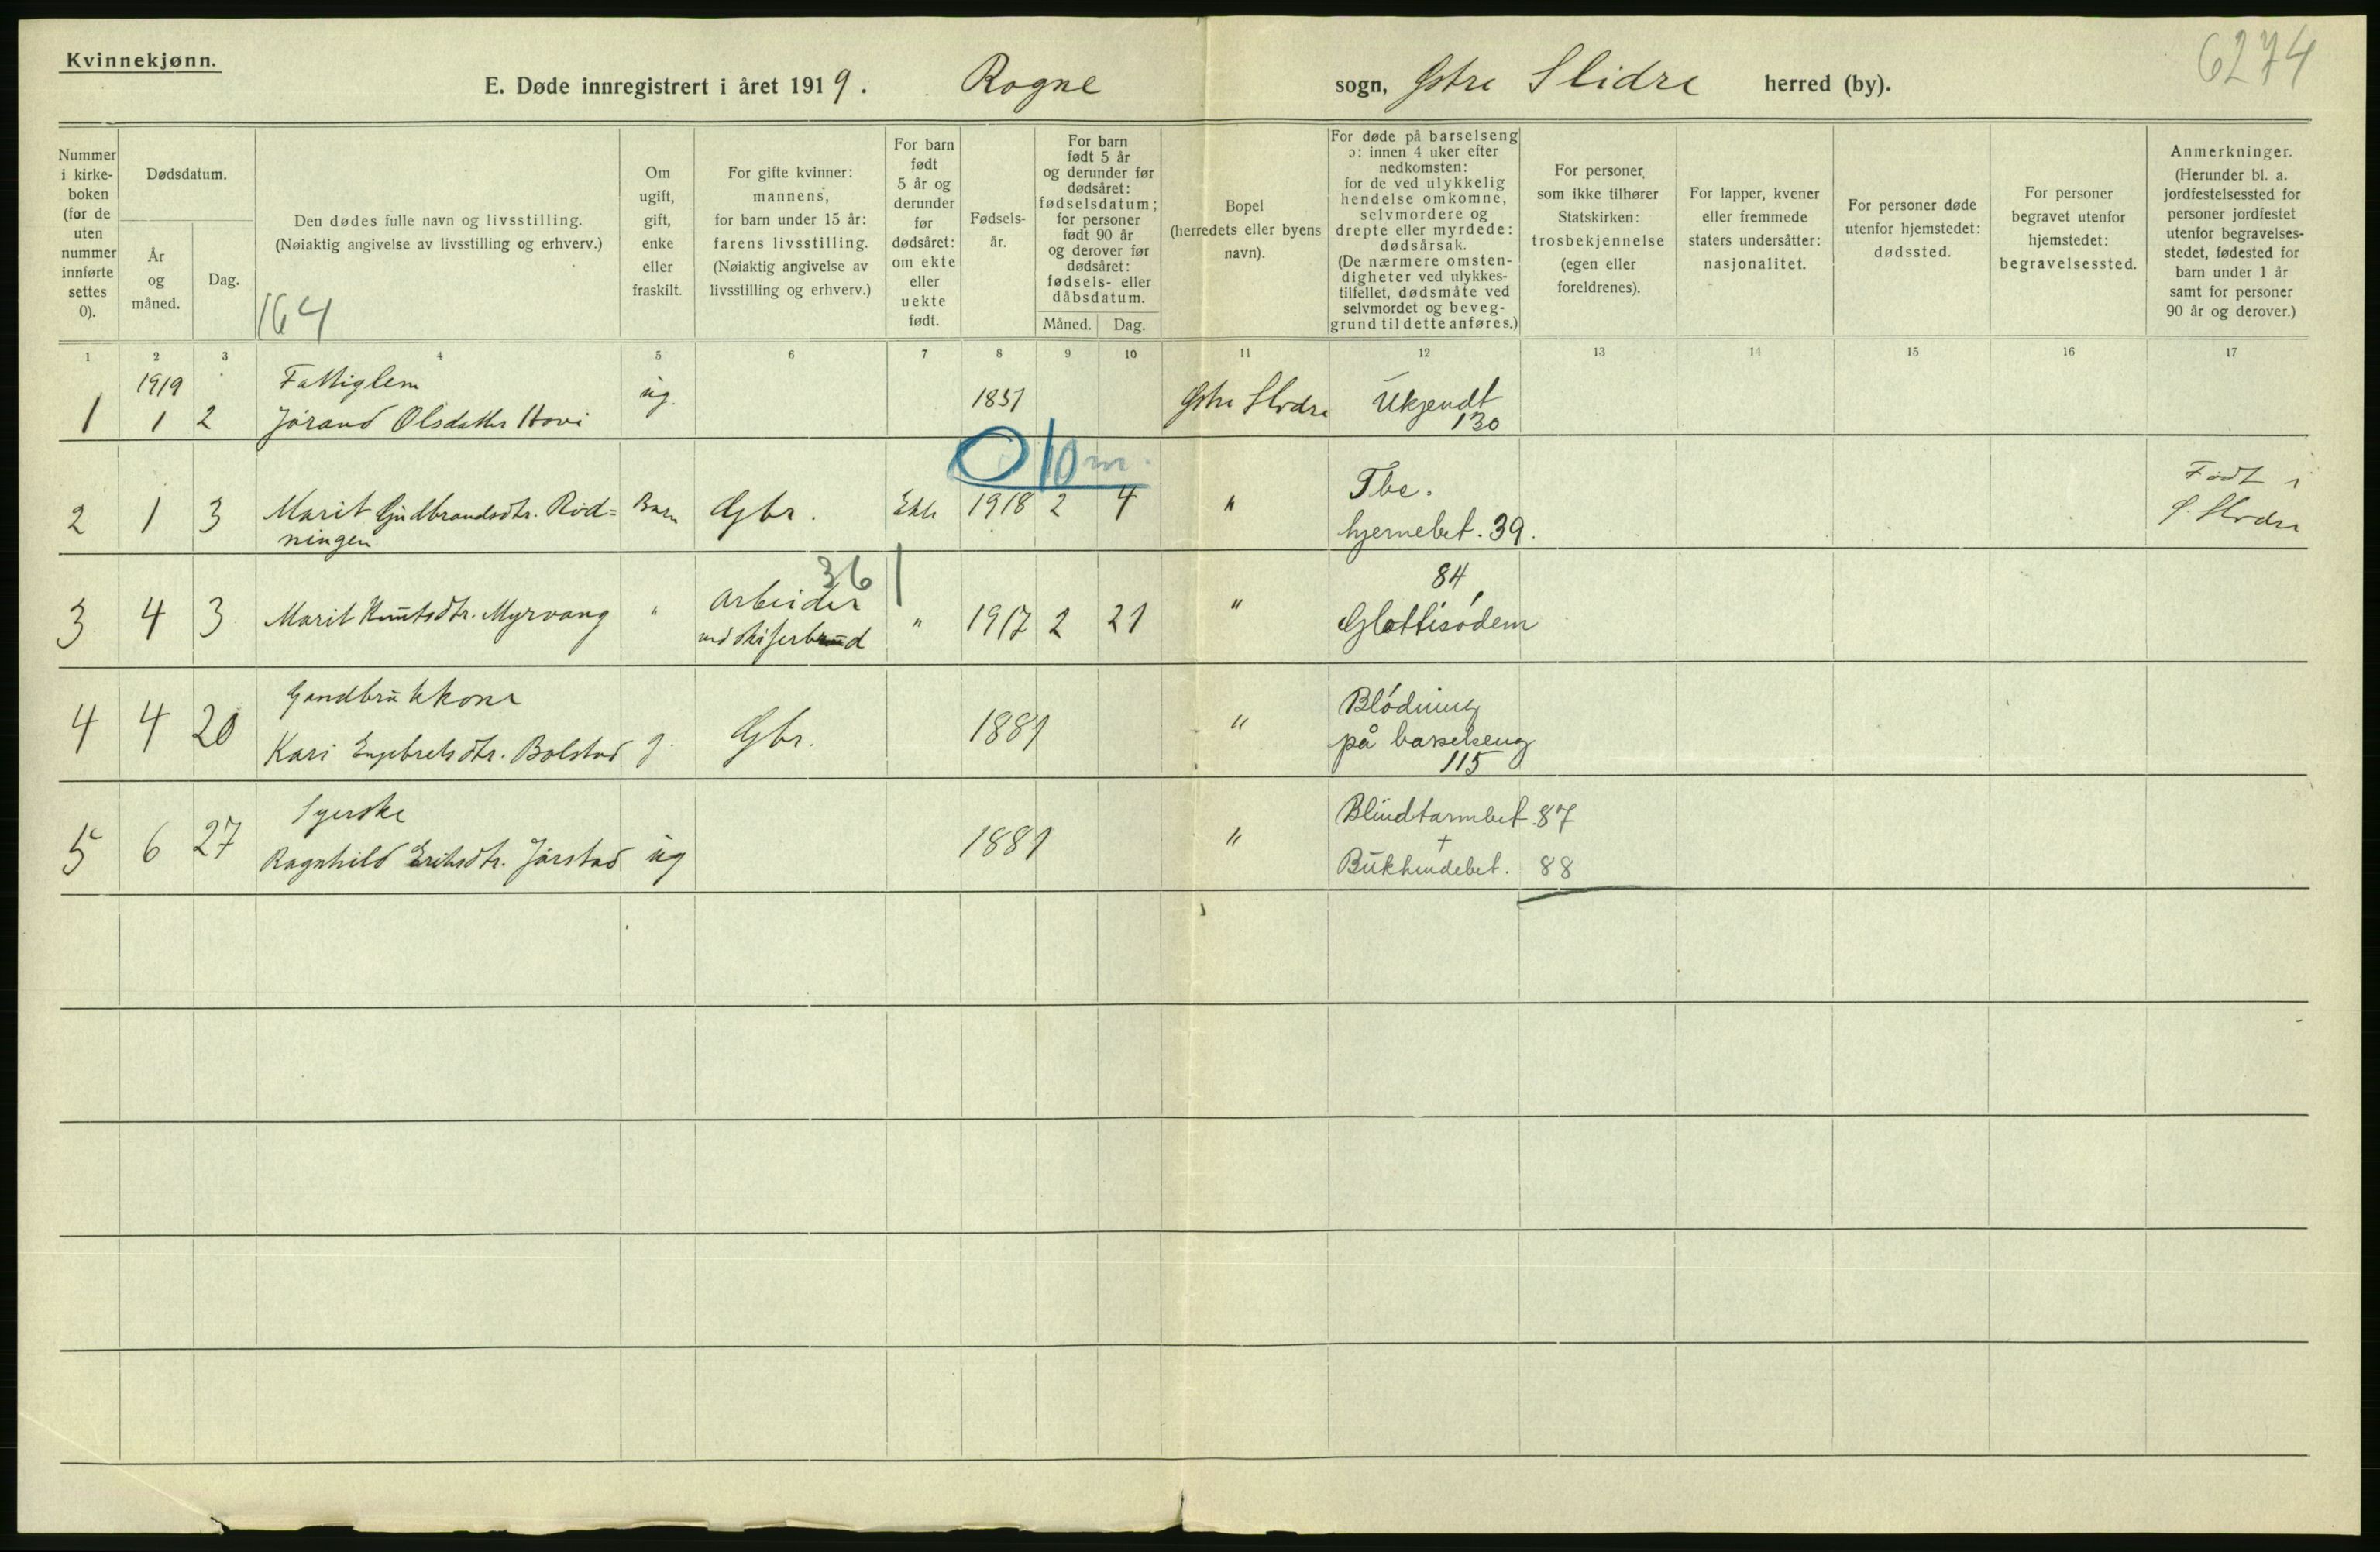 Kvinnekjønn.
6274
E. Døde innregistrert i året 1919. Rogne sogn, Østre Slidre herred (by).
Nummer i kirke-boken (for de uten nummer innførte settes 0).
Dødsdatum.
År og måned.
Dag.
Den dødes fulle navn og livsstilling.
(Nøiaktig angivelse av livsstilling og erhverv.)
164
Om ugift, gift, enke eller fraskilt.
For gifte kvinner: mannens, for barn under 15 år: farens livsstilling. (Nøiaktig angivelse av livsstilling og erhverv.)
For barn født 5 år og derunder før dødsåret: om ekte eller uekte født.
Fødsels-år.
For barn født 5 år og derunder før dødsåret: fødselsdatum; for personer født 90 år og derover før dødsåret: fødsels- eller dåbsdatum.
Måned. Dag.
Bopel (herredets eller byens navn).
For døde på barselseng ɔ: innen 4 uker efter nedkomsten: for de ved ulykkelig hendelse omkomne, selvmordere og drepte eller myrdede: dødsårsak. (De nærmere omsten-digheter ved ulykkes-tilfellet, dødsmåte ved selvmordet og beveg-grund til dette anføres.)
For personer, som ikke tilhører Statskirken: trosbekjennelse (egen eller foreldrenes).
For lapper, kvener eller fremmede staters undersåtter: nasjonalitet.
For personer døde utenfor hjemstedet: dødssted.
For personer begravet utenfor hjemstedet: begravelsessted.
Anmerkninger. (Herunder bl. a. jordfestelsessted for personer jordfestet utenfor begravelses-stedet, fødested for barn under 1 år samt for personer 90 år og derover.)
1 2 3 4 5 6 7 8 9 10 11 12 13 14 15 16 17
1919 Fattiglem
1 1 2 Jórand Olsdatter Hovi ug. 1837 Østre Slidre Ukjendt
130
0 10 m.
2 1 3 Marit Gudbrandsdtr. Ród= Barn Gbr. Ekte 1918 2 4 " Tbc. Født i
ningen hjernebet. 39. Ø. Slidre
361 84
3 4 3 Marit Knutsdtr. Myrvang " Arbeider " 1917 2 21 " Glottisódem
ved skiferbrud
4 4 20 Gaardbrukkone g. Gbr. 1881 " Blódning
Kari Engebretsdtr. Bolstad på barselseng
115
5 6 27 Syerske ug 1881 " Blindtarmbet. 87
Ragnhild Eriksdtr. Jarstad +
Bukhindebet. 88